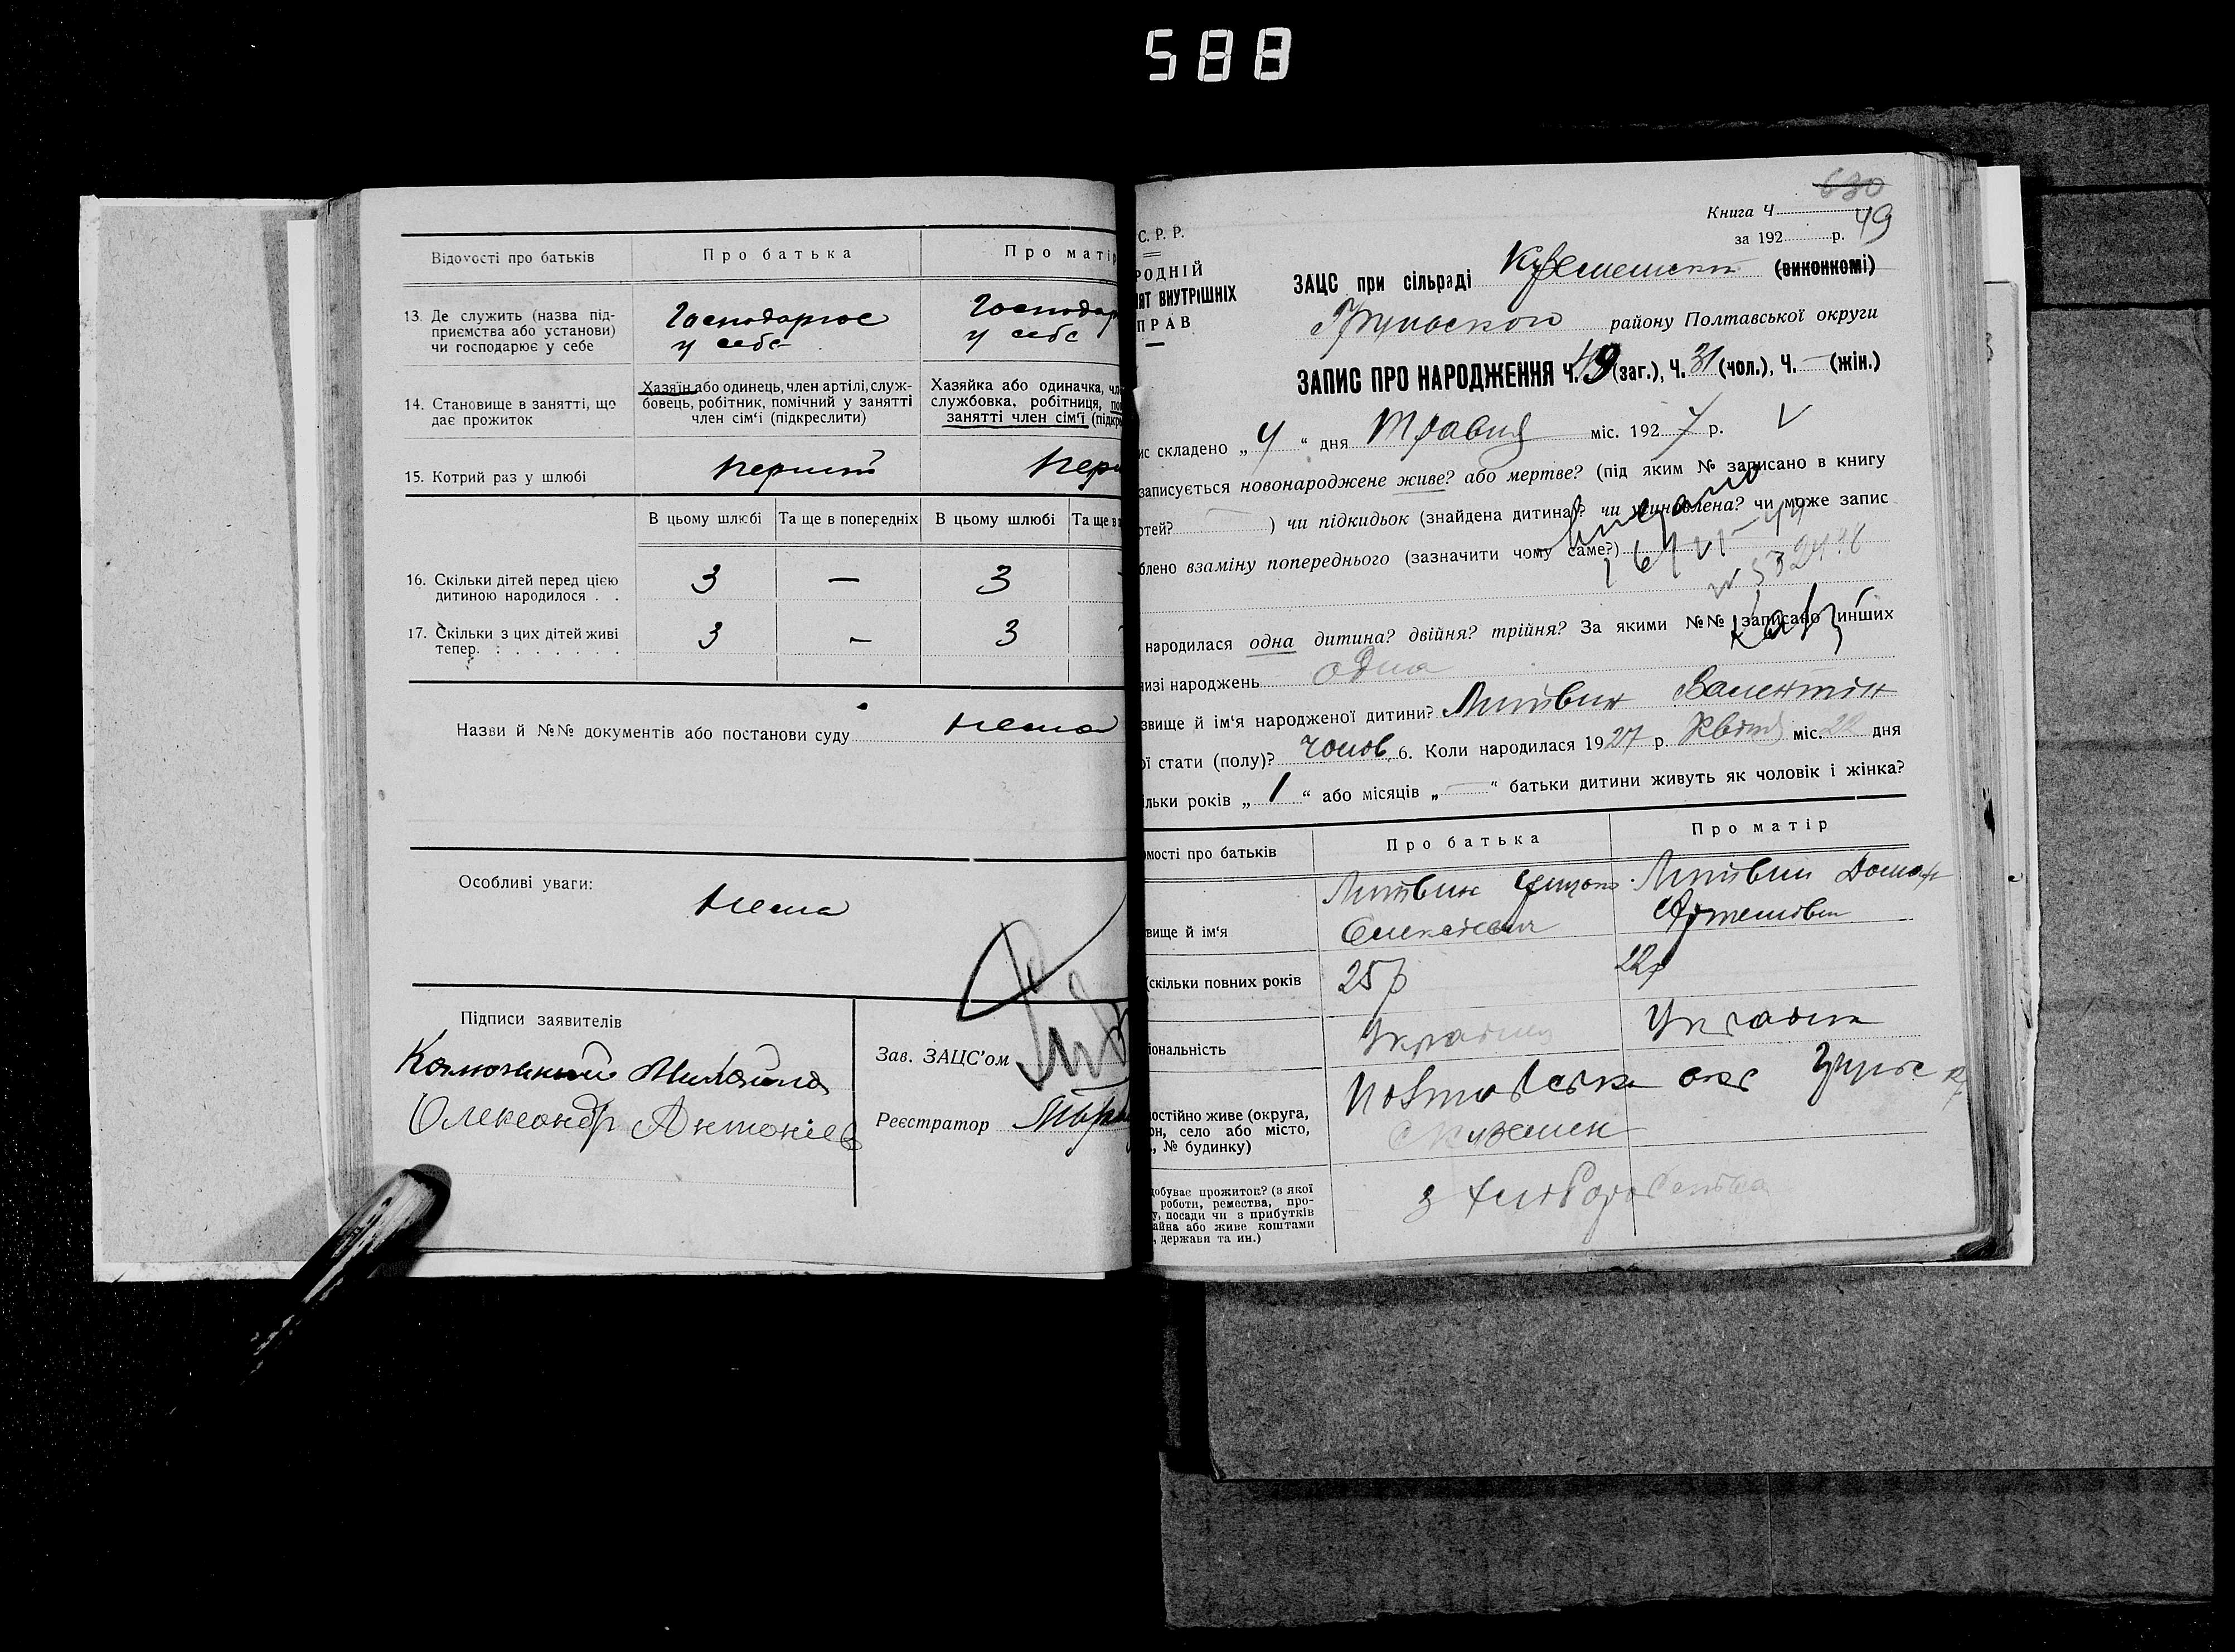 588
Відомості про батьків
Про батька
Про матір
13. Де служить (назва під-
приємства або установи)
чи господарює у себе
Господарює
у себе
Господар
у себе
14. Становище в занятті, що
дає прожиток
Хазяїн або одинець, член артілі, служ-
бовець, робітник, помічний у занятті
член сім'ї (підкреслити)
Хазяйка або одиначка, чл
службовка, робітниця, по
занятті член сім'ї (підкре
15. Котрий раз у шлюбі
перший
пер
В цьому шлюбі
Та ще в попередніх
В цьому шлюбі
Та ще в п
16. Скільки дітей перед цією
дитиною народилося . .
3 — 3
17. Скільки з цих дітей живі
тепер. : . . . . . . .
3 — 3
Назви й №№ документів або постанови суду нема
Особливі уваги:
нема
Підписи заявителів
Олександр Антоніев
Зав. ЗАЦС'ом
Реєстратор
630
Книга Ч.
49
за 192 р.
С. Р. Р.
РОДНІЙ
ЯТ ВНУТРІШНІХ
ПРАВ
ЗАЦС при сільраді (виконкомі)
району Полтавської округи
ЗАПИС ПРО НАРОДЖЕННЯ Ч. 49 (заг.), Ч. 31 (чол.), Ч. — (жін.)
ис складено „ 4 “ дня Травня міс. 192 7 р. V
записується новонароджене живе? або мертве? (під яким № записано в книгу
ртей? ) чи підкидьок (знайдена дитина)? чи усиновлена? чи може запис
блено взаміну попереднього (зазначити чому саме?)
народилася одна дитина? двійня? трійня? За якими №№ записано инших
низі народжень одна
звище й ім'я народженої дитини? Литвин Валентін
ої стати (полу)? чолов. 6. Коли народилася 19 27 р. Квітня міс. 22 дня
ільки років „ 1 “ або місяців „ — “ батьки дитини живуть як чоловік і жінка?
омості про батьків
Про батька
Про матір
звище й ім'я
Литвин
Литвин Домах
Артемовн
(скільки повних років
25 р
22 р
іональність
Українец
Українк
постійно живе (округа,
он, село або місто,
., № будинку)
Полтавська окр
добуває прожиток? (з якої
роботи, ремества, про-
у, посади чи з прибутків
айна або живе коштами
, держави та ин.)
з хліборобства